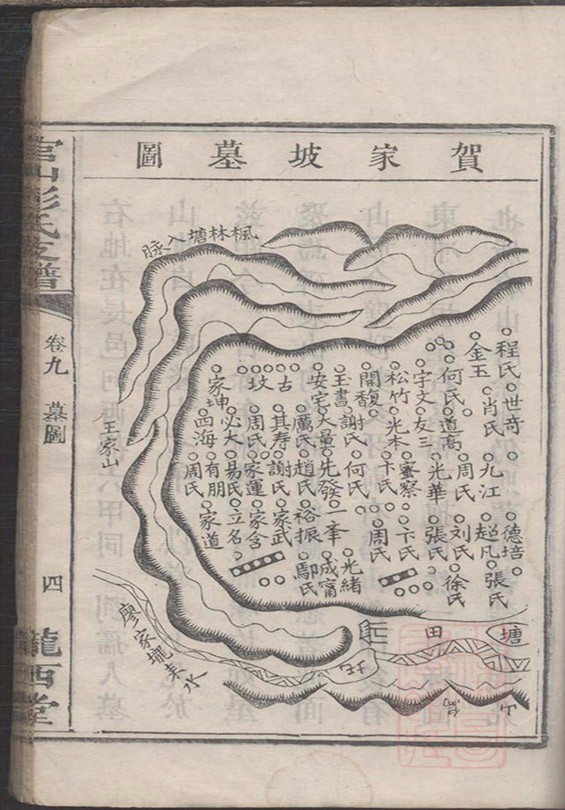 賀家坡墓圖
官山彭氏支譜
卷九
墓圖
四
隴西堂
楓林塘入脉
王家山
廖家壠來水
程氏
世奇
德培
張氏
金玉
肖氏
九江
超凡
何氏
道高
周氏
刘氏
徐氏
宇文
友三
光華
張氏
松竹
光本
卞氏
審察
卞氏
開馥
謝氏
何氏
周氏
玉書
安宅
大量
先發
一峯
成甯
光緒
古坟
厲氏
趙氏
裕振
鄢氏
其寿
謝氏
家武
周氏
家運
家含
家坤
必大
易氏
立名
四海
有朋
家道
周氏
田
塘